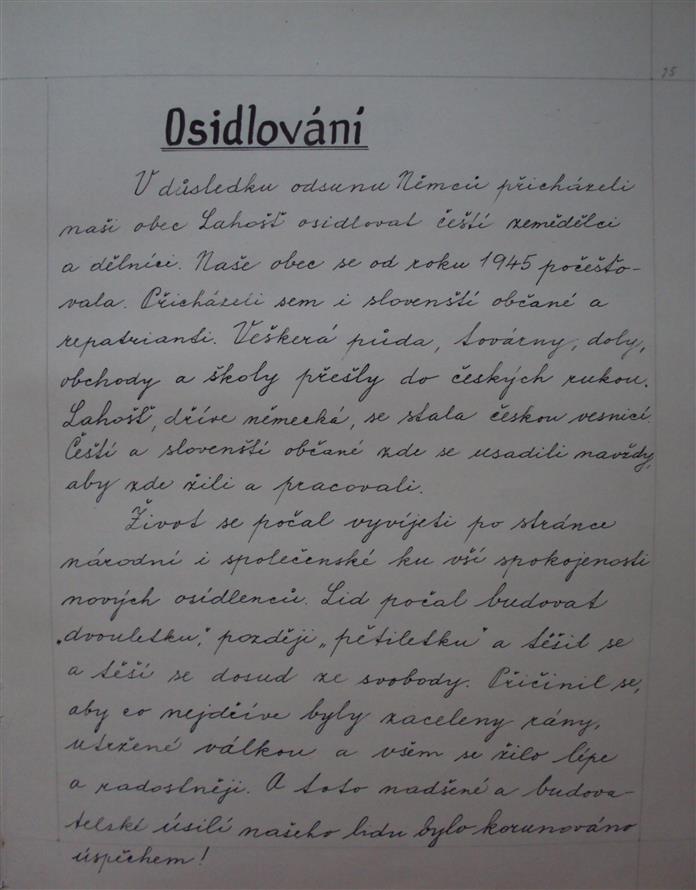 25
Osidlování
V důsledku odsunu Němců přicházeli
naši obec Lahošť osidlovat čeští zemědělci
a dělníci. Naše obec se od roku 1945 počešťo-
vala. Přicházeli sem i slovenští občané a
repatrianti. Veškerá půda, továrny, doly,
obchody a školy přešly do českých rukou.
Lahošť, dříve německá, se stala českou vesnicí.
Čeští a slovenští občané zde se usadili navždy,
aby zde žili a pracovali.
Život se počal vyvíjeti po stránce
národní i společenské ku vší spokojenosti
nových osídlenců. Lid počal budovat
„dvouletku“, později „pětiletku“ a těšil se
a těší se dosud ze svobody. Přičinil se,
aby co nejdříve byly zaceleny rány,
utržené válkou a všem se žilo lépe
a radostněji. A toto nadšené a budova-
telské úsilí našeho lidu bylo korunováno
úspěchem!